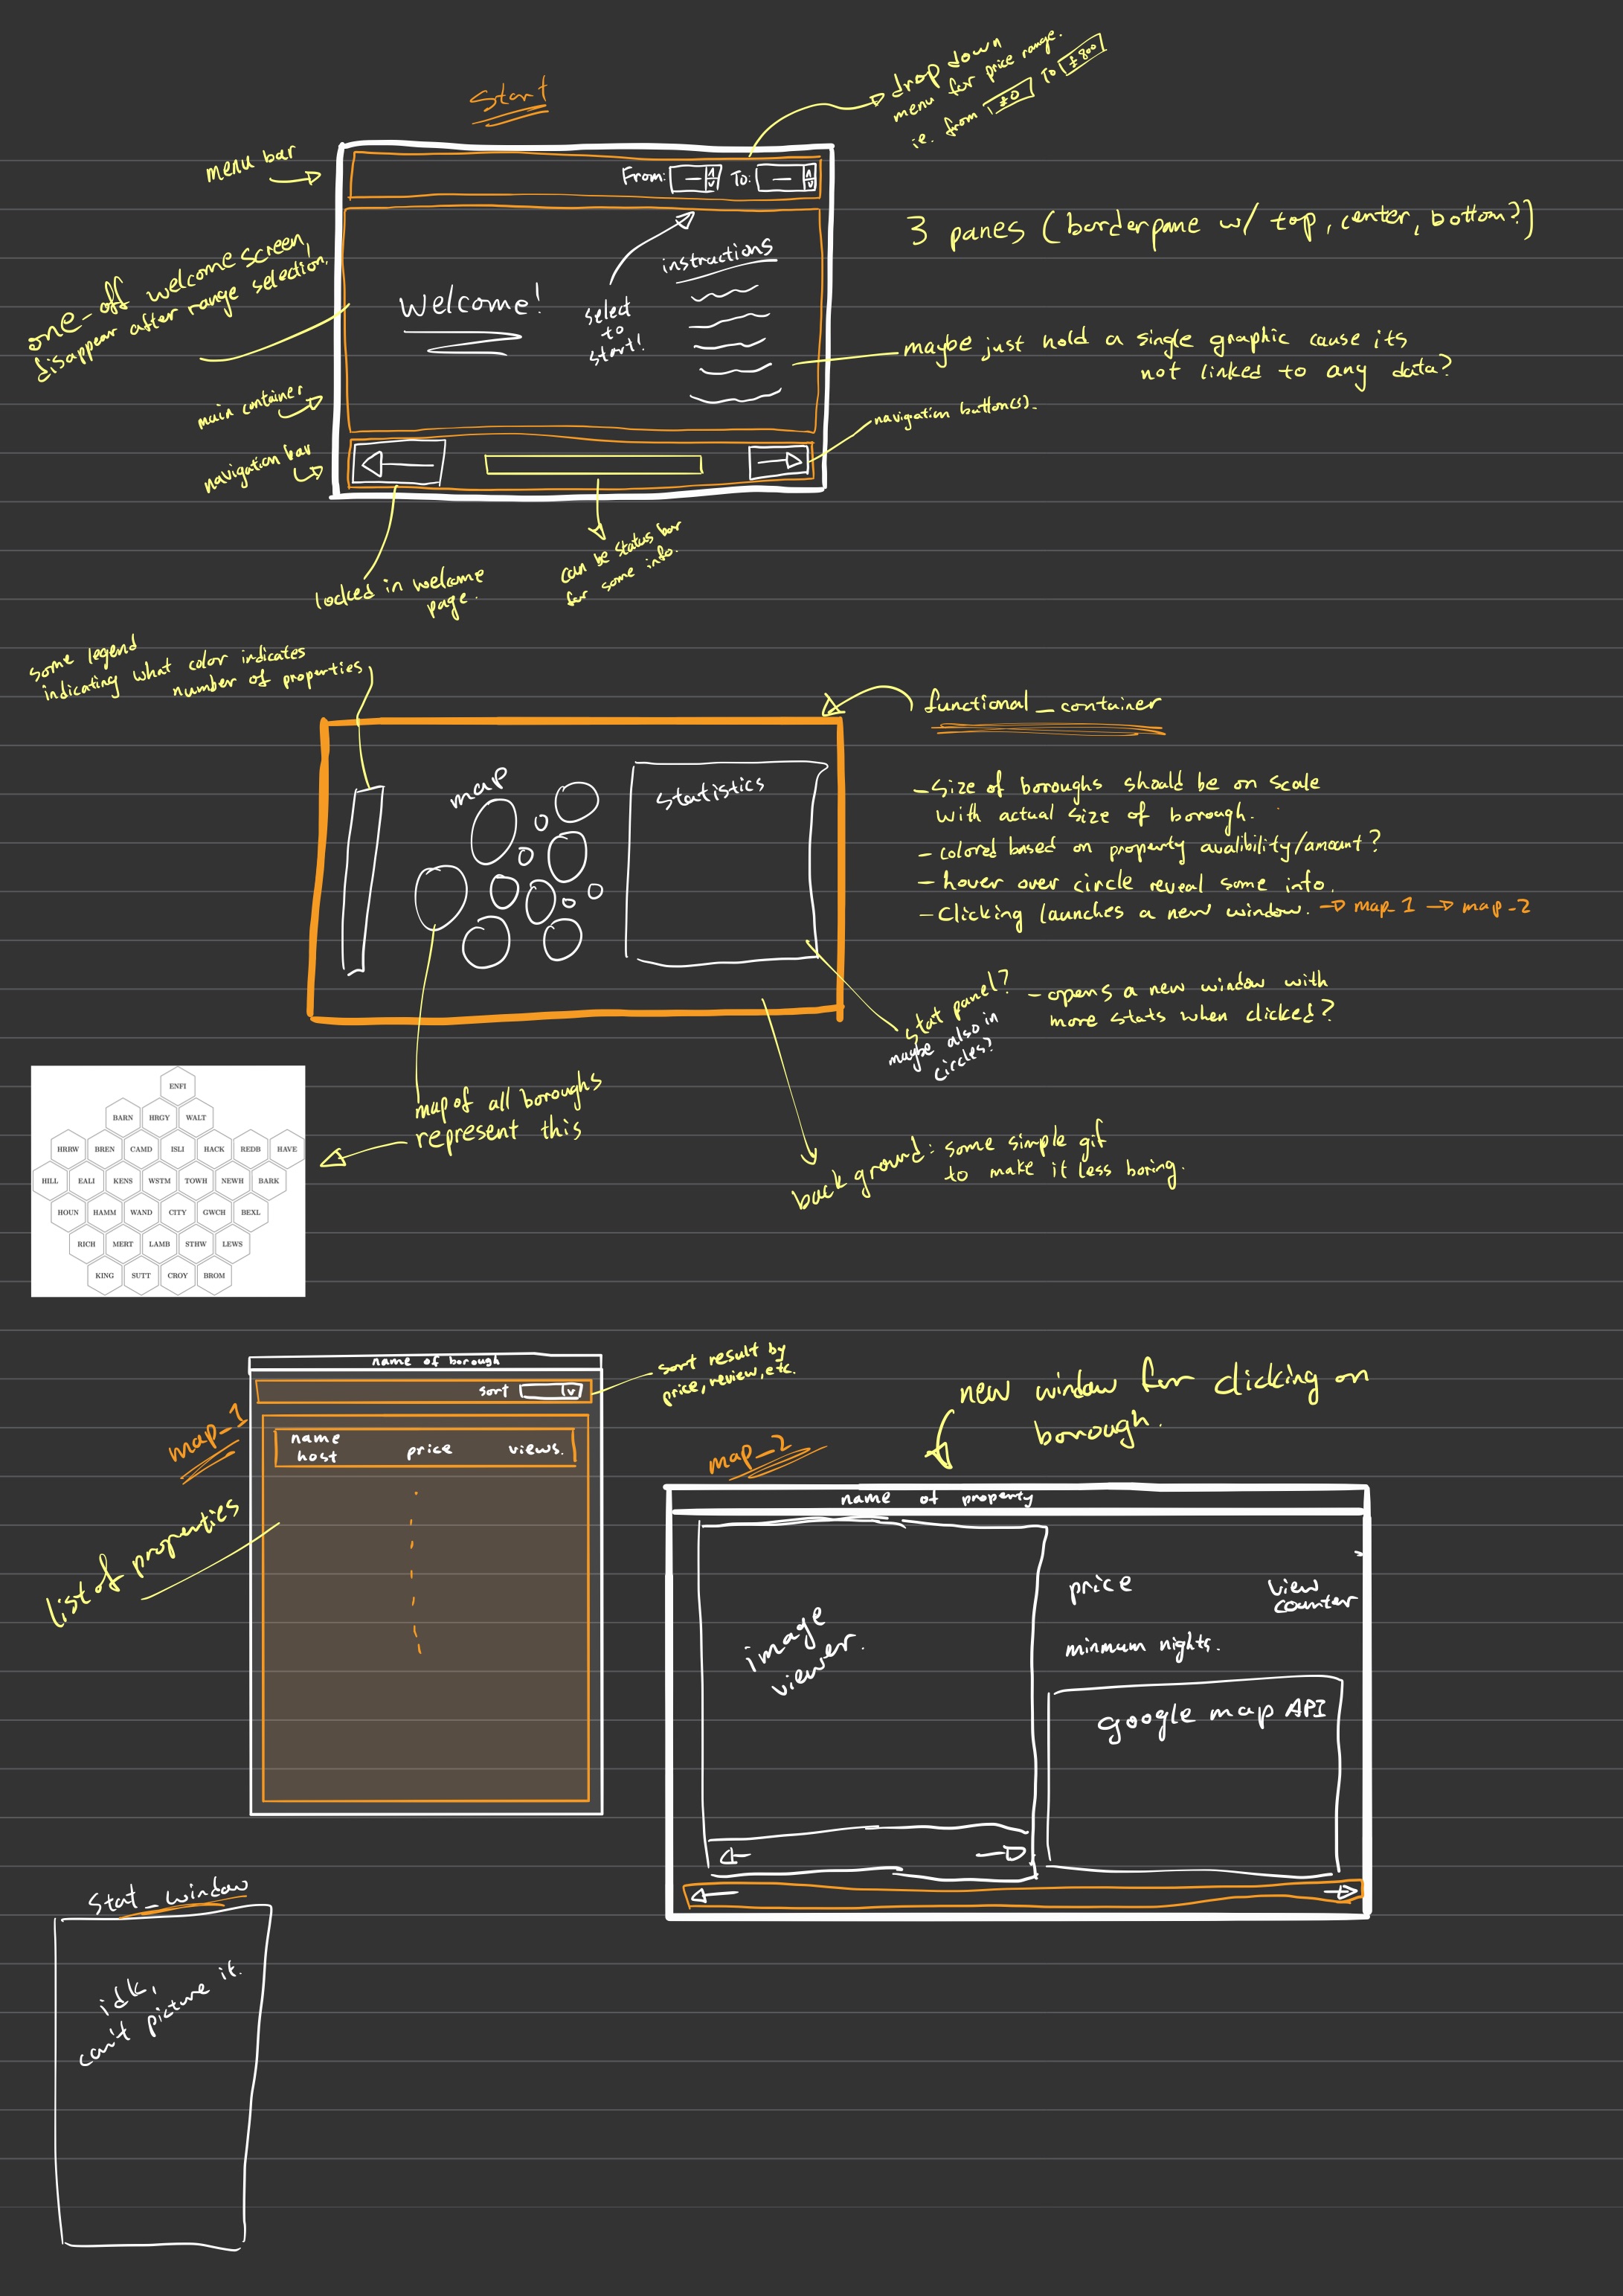 Start
drop down
menu for price range.
ie. from £0 To £800
menu bar
From: — To: —
3 panes (borderpane w/ top, center, bottom?)
one-off welcome screen,
disappear after range selection.
instructions
Welcome!
select
to
start!
maybe just hold a single graphic cause its
not linked to any data?
main container
navigation button(s).
navigation bar
can be status bar
for some info.
locked in welcome
page.
some legend
indicating what color indicates
number of properties
functional_container
map
statistics
-size of boroughs should be on scale
with actual size of borough.
-colored based on property avalibility/amount?
-hover over circle reveal some info.
-Clicking launches a new window. → map_1 → map_2
stat panel?
maybe also in
circles?
-opens a new window with
more stats when clicked?
map of all boroughs
represent this
back ground: some simple gif
to make it less boring.
ENFI
BARN HRGY WALT
HRRW BREN CAMD ISLI HACK REDB HAVE
HILL EALI KENS WSTM TOWH NEWH BARK
HOUN HAMM WAND CITY GWCH BEXL
RICH MERT LAMB STHW LEWS
KING SUTT CROY BROM
name of borough
sort
sort result by
price, review, etc.
map_1
name
host
price
views.
list of properties
new window for clicking on
borough.
map_2
name of property
image
viewer.
price
view
counter
minmum nights.
google map API
Stat_window
idk,
can't picture it.